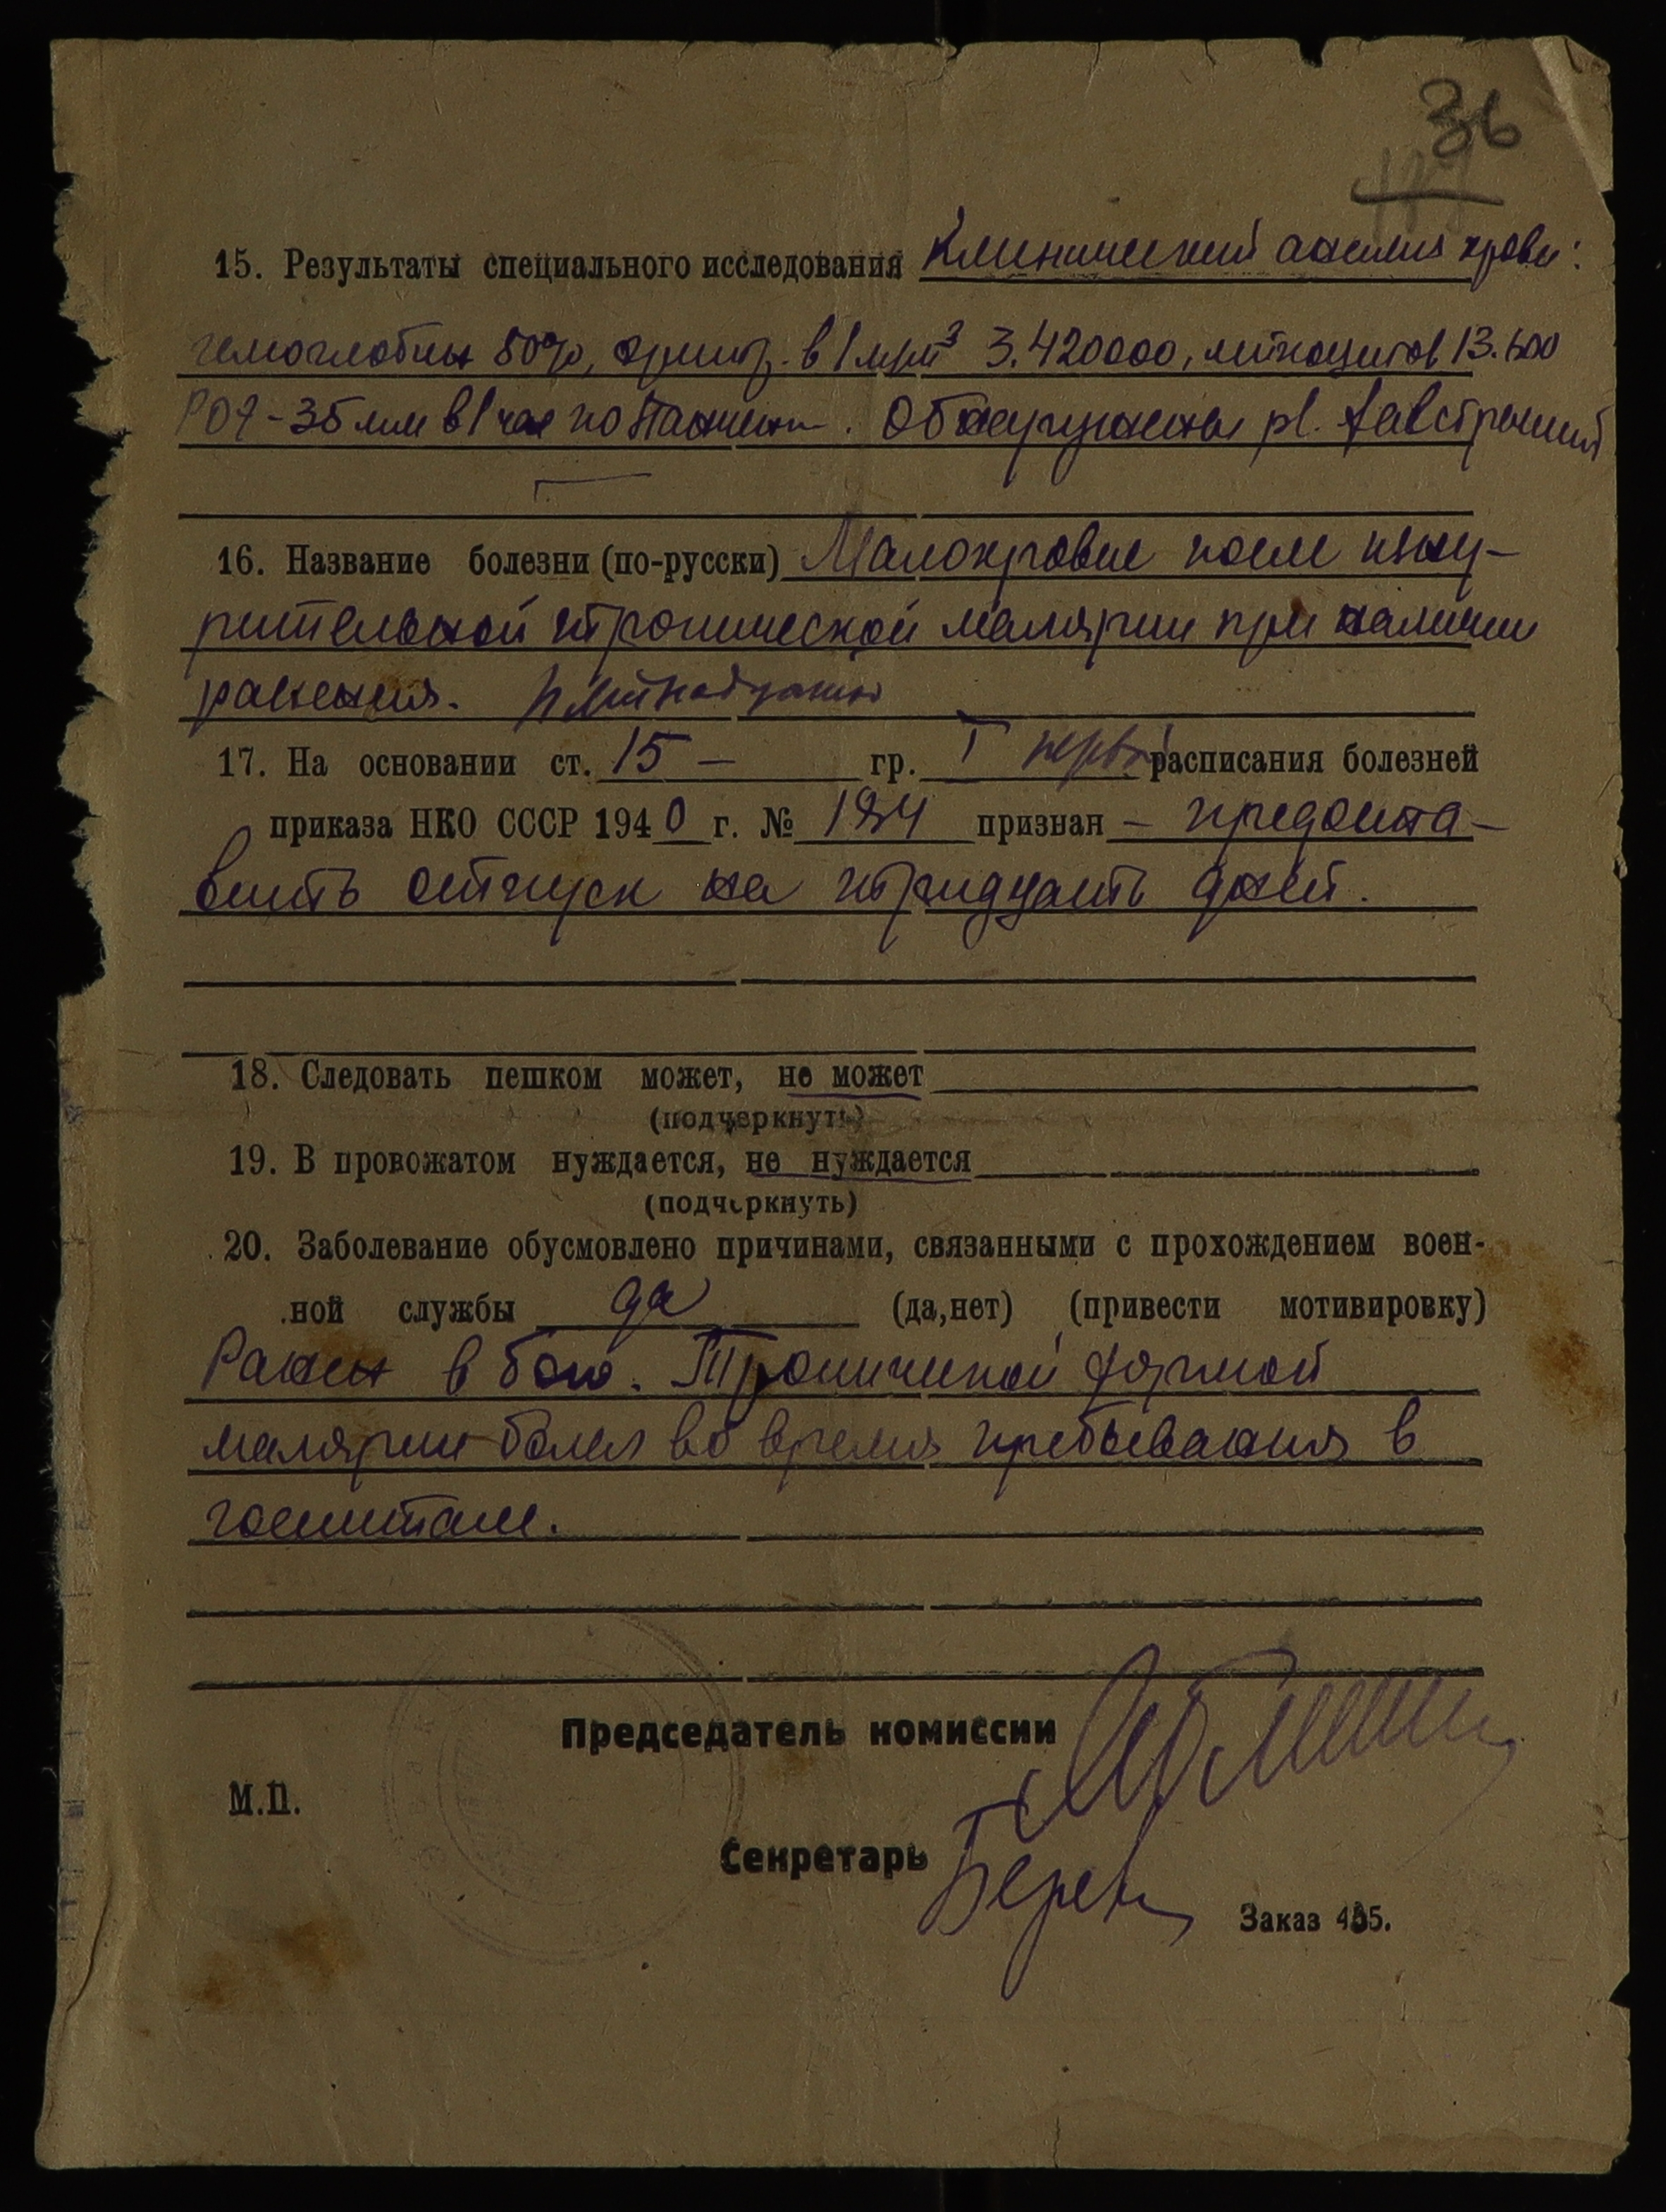 36
15. Результаты специального исследования Клинический анализ крови:
гемоглобин 50%, эритр. в 1 мм³ 3.420000, лейкоцитов 13.600
РОЭ - 35 мм в 1 час по Панченк. Обнаружены pl.
16. Название болезни (по-русски) Малокровие после изну-
рительной тропической малярии при наличии
ранения.
17. На основании ст. 15 — гр. I перв. расписания болезней
приказа НКО СССР 1940 г. № 184 признан — предоста-
вить отпуск на тридцать дней.
18. Следовать пешком может, не может
(подчеркнуть)
19. В провожатом нуждается, не нуждается
(подчеркнуть)
20. Заболевание обусмовлено причинами, связанными с прохождением воен-
ной службы да (да,нет) (привести мотивировку)
Ранен в бою. Тропической формой
малярии болел во время пребывания в
госпитале.
Председатель комиссии
М.П.
Секретарь
Заказ 435.